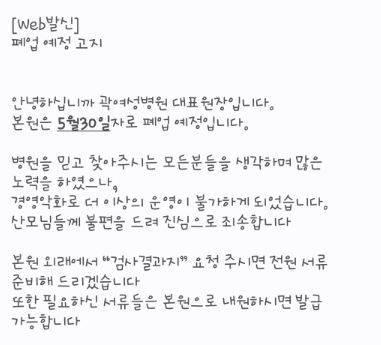 [Web발신]
폐업 예정 고지
안녕하십니까 곽여성병원 대표원장입니다.
본원은 5월30일자로 폐업 예정입니다.
병원을 믿고 찾아주시는 모든분들을 생각하며 많은
노력을 하였으나,
경영악화로 더 이상의 운영이 불가하게 되었습니다.
산모님들께 불편을 드려 진심으로 죄송합니다
본원 외래에서 “검사결과지” 요청 주시면 전원 서류
준비해 드리겠습니다
또한 필요하신 서류들은 본원으로 내원하시면 발급
가능합니다